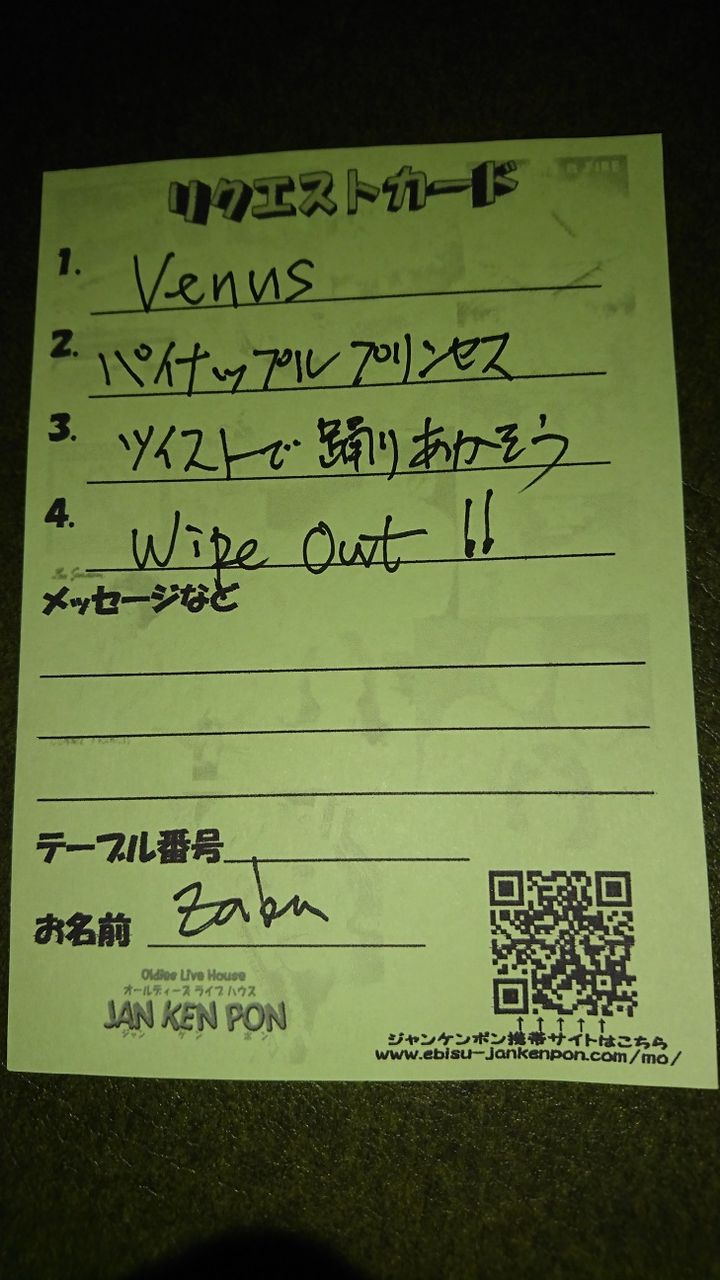 リクエストカード
1. Venus
2. パイナップルプリンセス
3. ツイストで踊りあかそう
4. Wipe Out !!
メッセージなど
テーブル番号
お名前 zabu
Oldies Live House
オールディーズ ライブ ハウス
JAN KEN PON
ジャン ケン ポン
↑↑↑↑↑
ジャンケンポン携帯サイトはこちら
www.ebisu-jankenpon.com/mo/